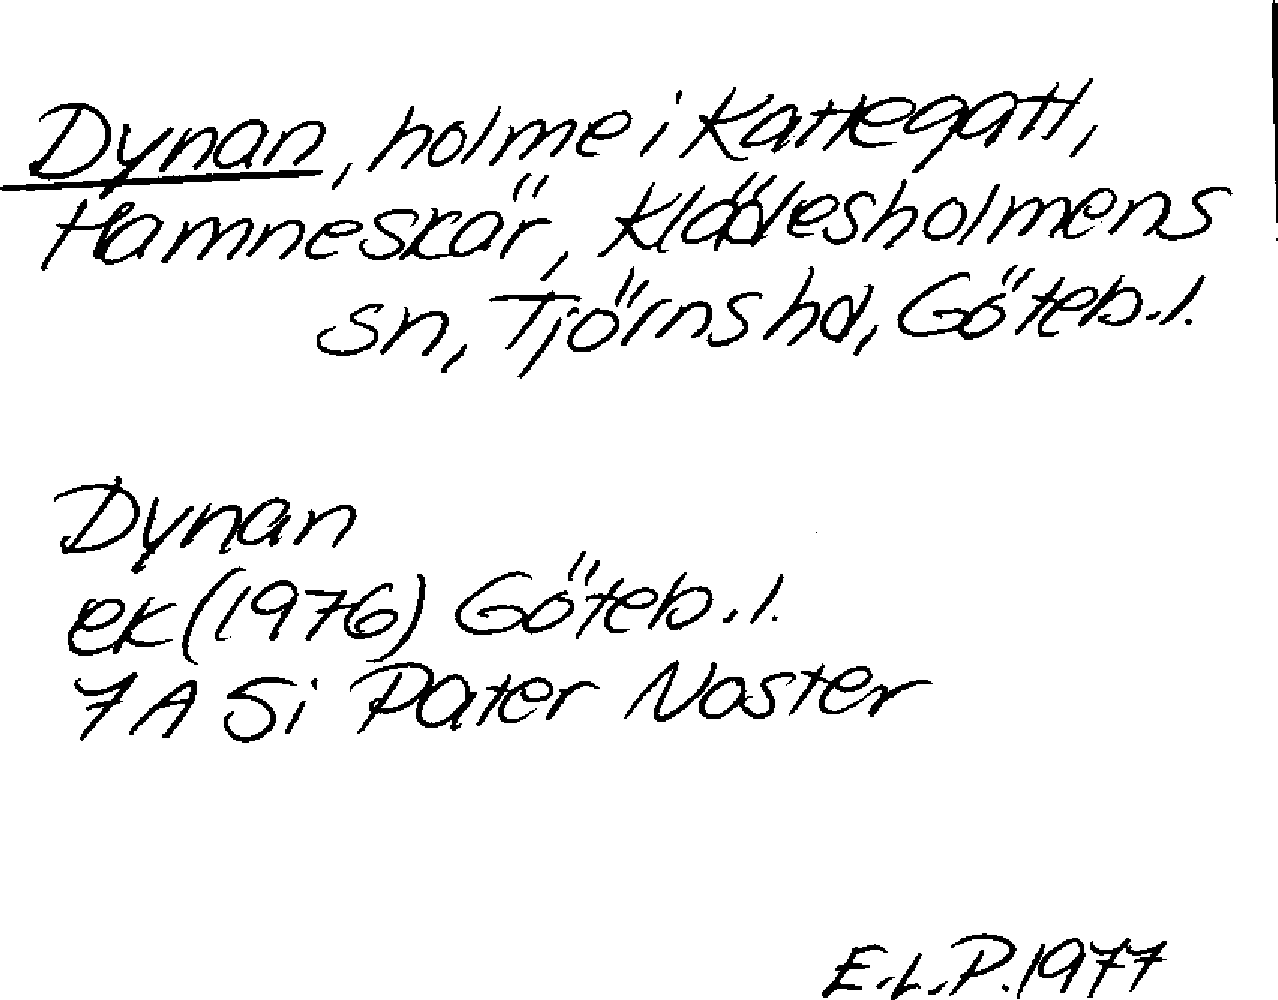 Dynan, holme i Kattegatt,
Hamneskär, Klädesholmens
sn, Tjörns hd, Göteb.l.
Dynan
ek (1976) Göteb.l.
7A Si Pater Noster
E.L.P. 1977